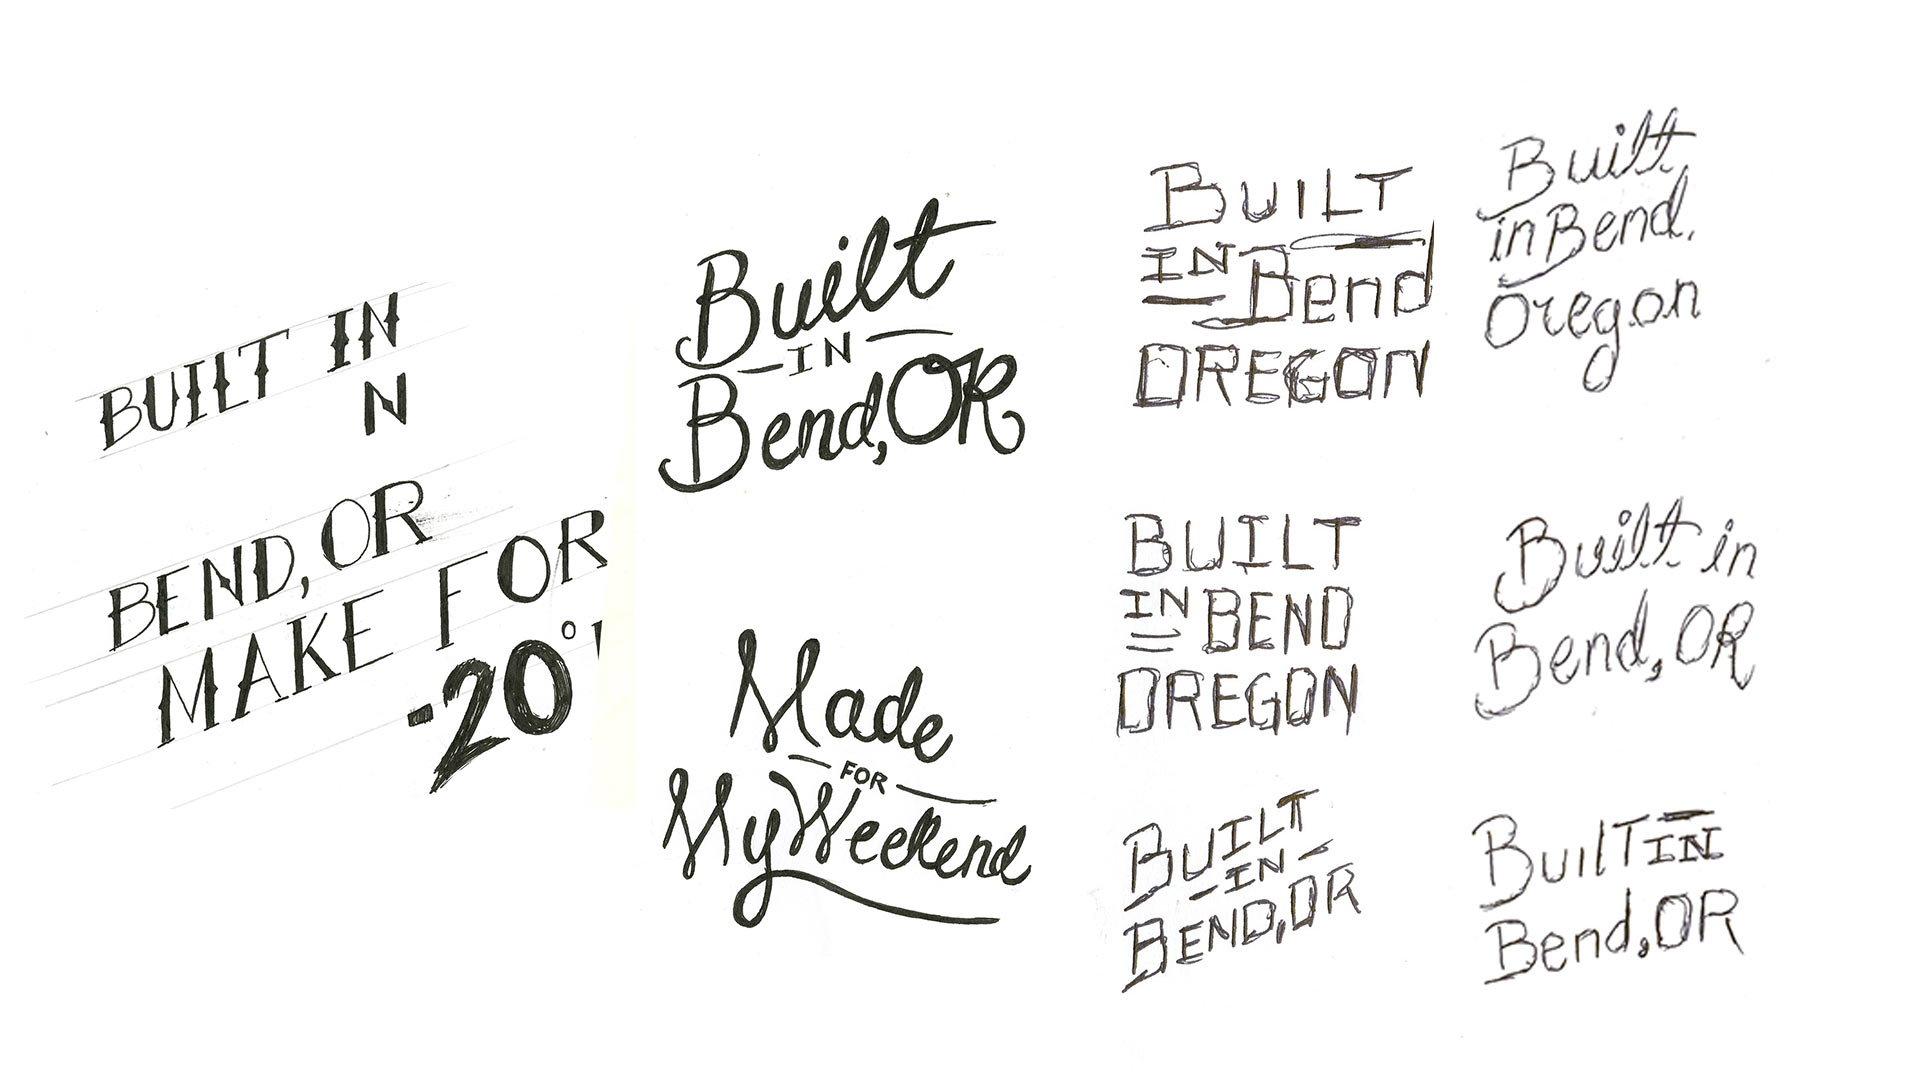 BUILT IN
N
BEND, OR
MAKE FOR
-20°
Built
IN
Bend, OR
Made
FOR
My Weekend
BUILT
IN Bend
OREGON
BUILT
IN BEND
OREGON
BUILT
-IN-
BEND, OR
Built
in Bend,
Oregon
Built in
Bend, OR
BuilT IN
Bend, OR